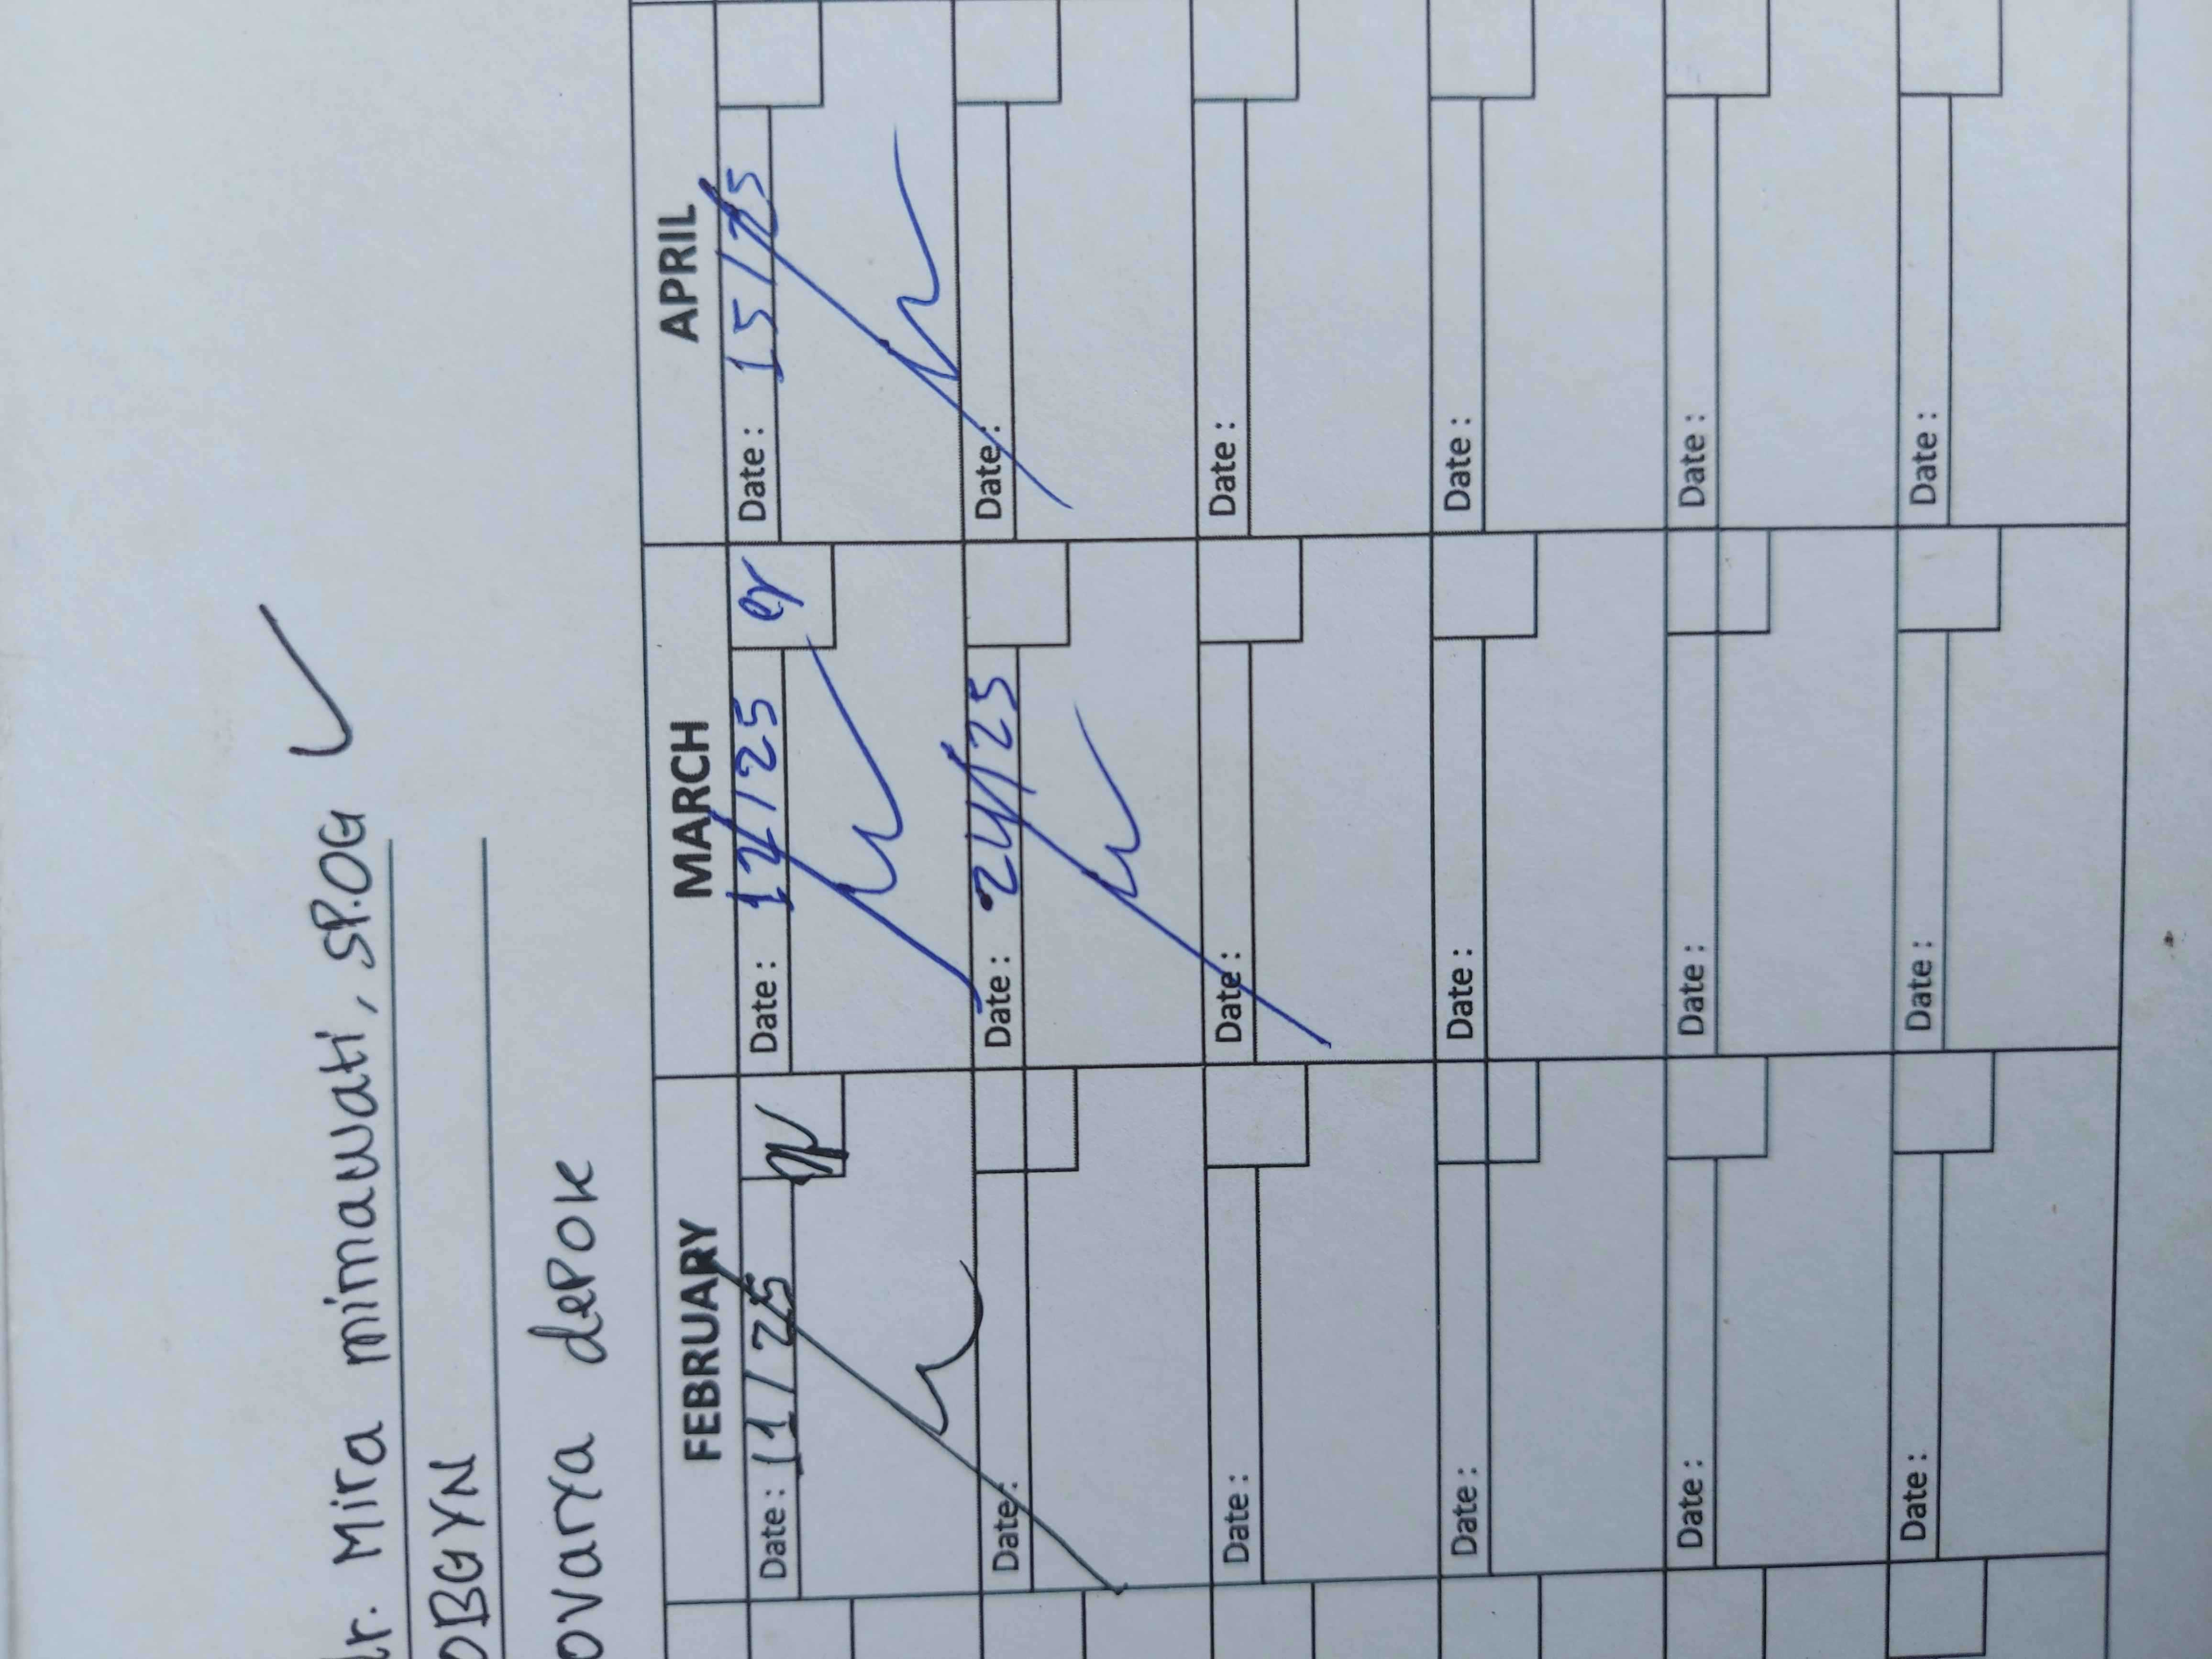 dr. Mira mimawati, SP.OG
OBGYN
ovarya depok
FEBRUARY MARCH APRIL
Date : 11/25 Date : 12/25 Date : 15/25
Date : Date : 24/25 Date :
Date : Date : Date :
Date : Date : Date :
Date : Date : Date :
Date : Date : Date :